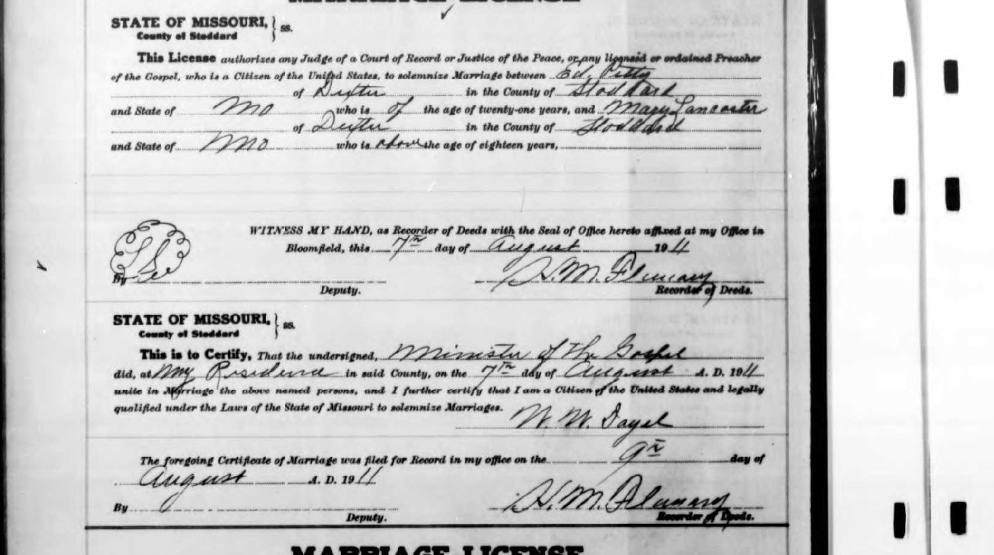 MARRIAGE LICENSE
STATE OF MISSOURI, } ss.
County of Stoddard
This License authorizes any Judge of a Court of Record or Justice of the Peace, or any licensed or ordained Preacher
of the Gospel, who is a Citizen of the United States, to solemnize Marriage between Ed. Pitts
of Dexter in the County of Stoddard
and State of Mo who is of the age of twenty-one years, and Mary Lancaster
of Dexter in the County of Stoddard
and State of Mo who is above the age of eighteen years,
WITNESS MY HAND, as Recorder of Deeds with the Seal of Office hereto affixed at my Office in
Bloomfield, this 7th day of August 1911
By H. M.
Deputy. Recorder of Deeds.
STATE OF MISSOURI, } ss.
County of Stoddard
This is to Certify, That the undersigned, Minister of the Gospel
did, at My Residence in said County, on the 7th day of August A. D. 1911
unite in Marriage the above named persons, and I further certify that I am a Citizen of the United States and legally
qualified under the Laws of the State of Missouri to solemnize Marriages.
W. W.
The foregoing Certificate of Marriage was filed for Record in my office on the 9th day of
August A. D. 1911
By H. M.
Deputy. Recorder of Deeds.
MARRIAGE LICENSE